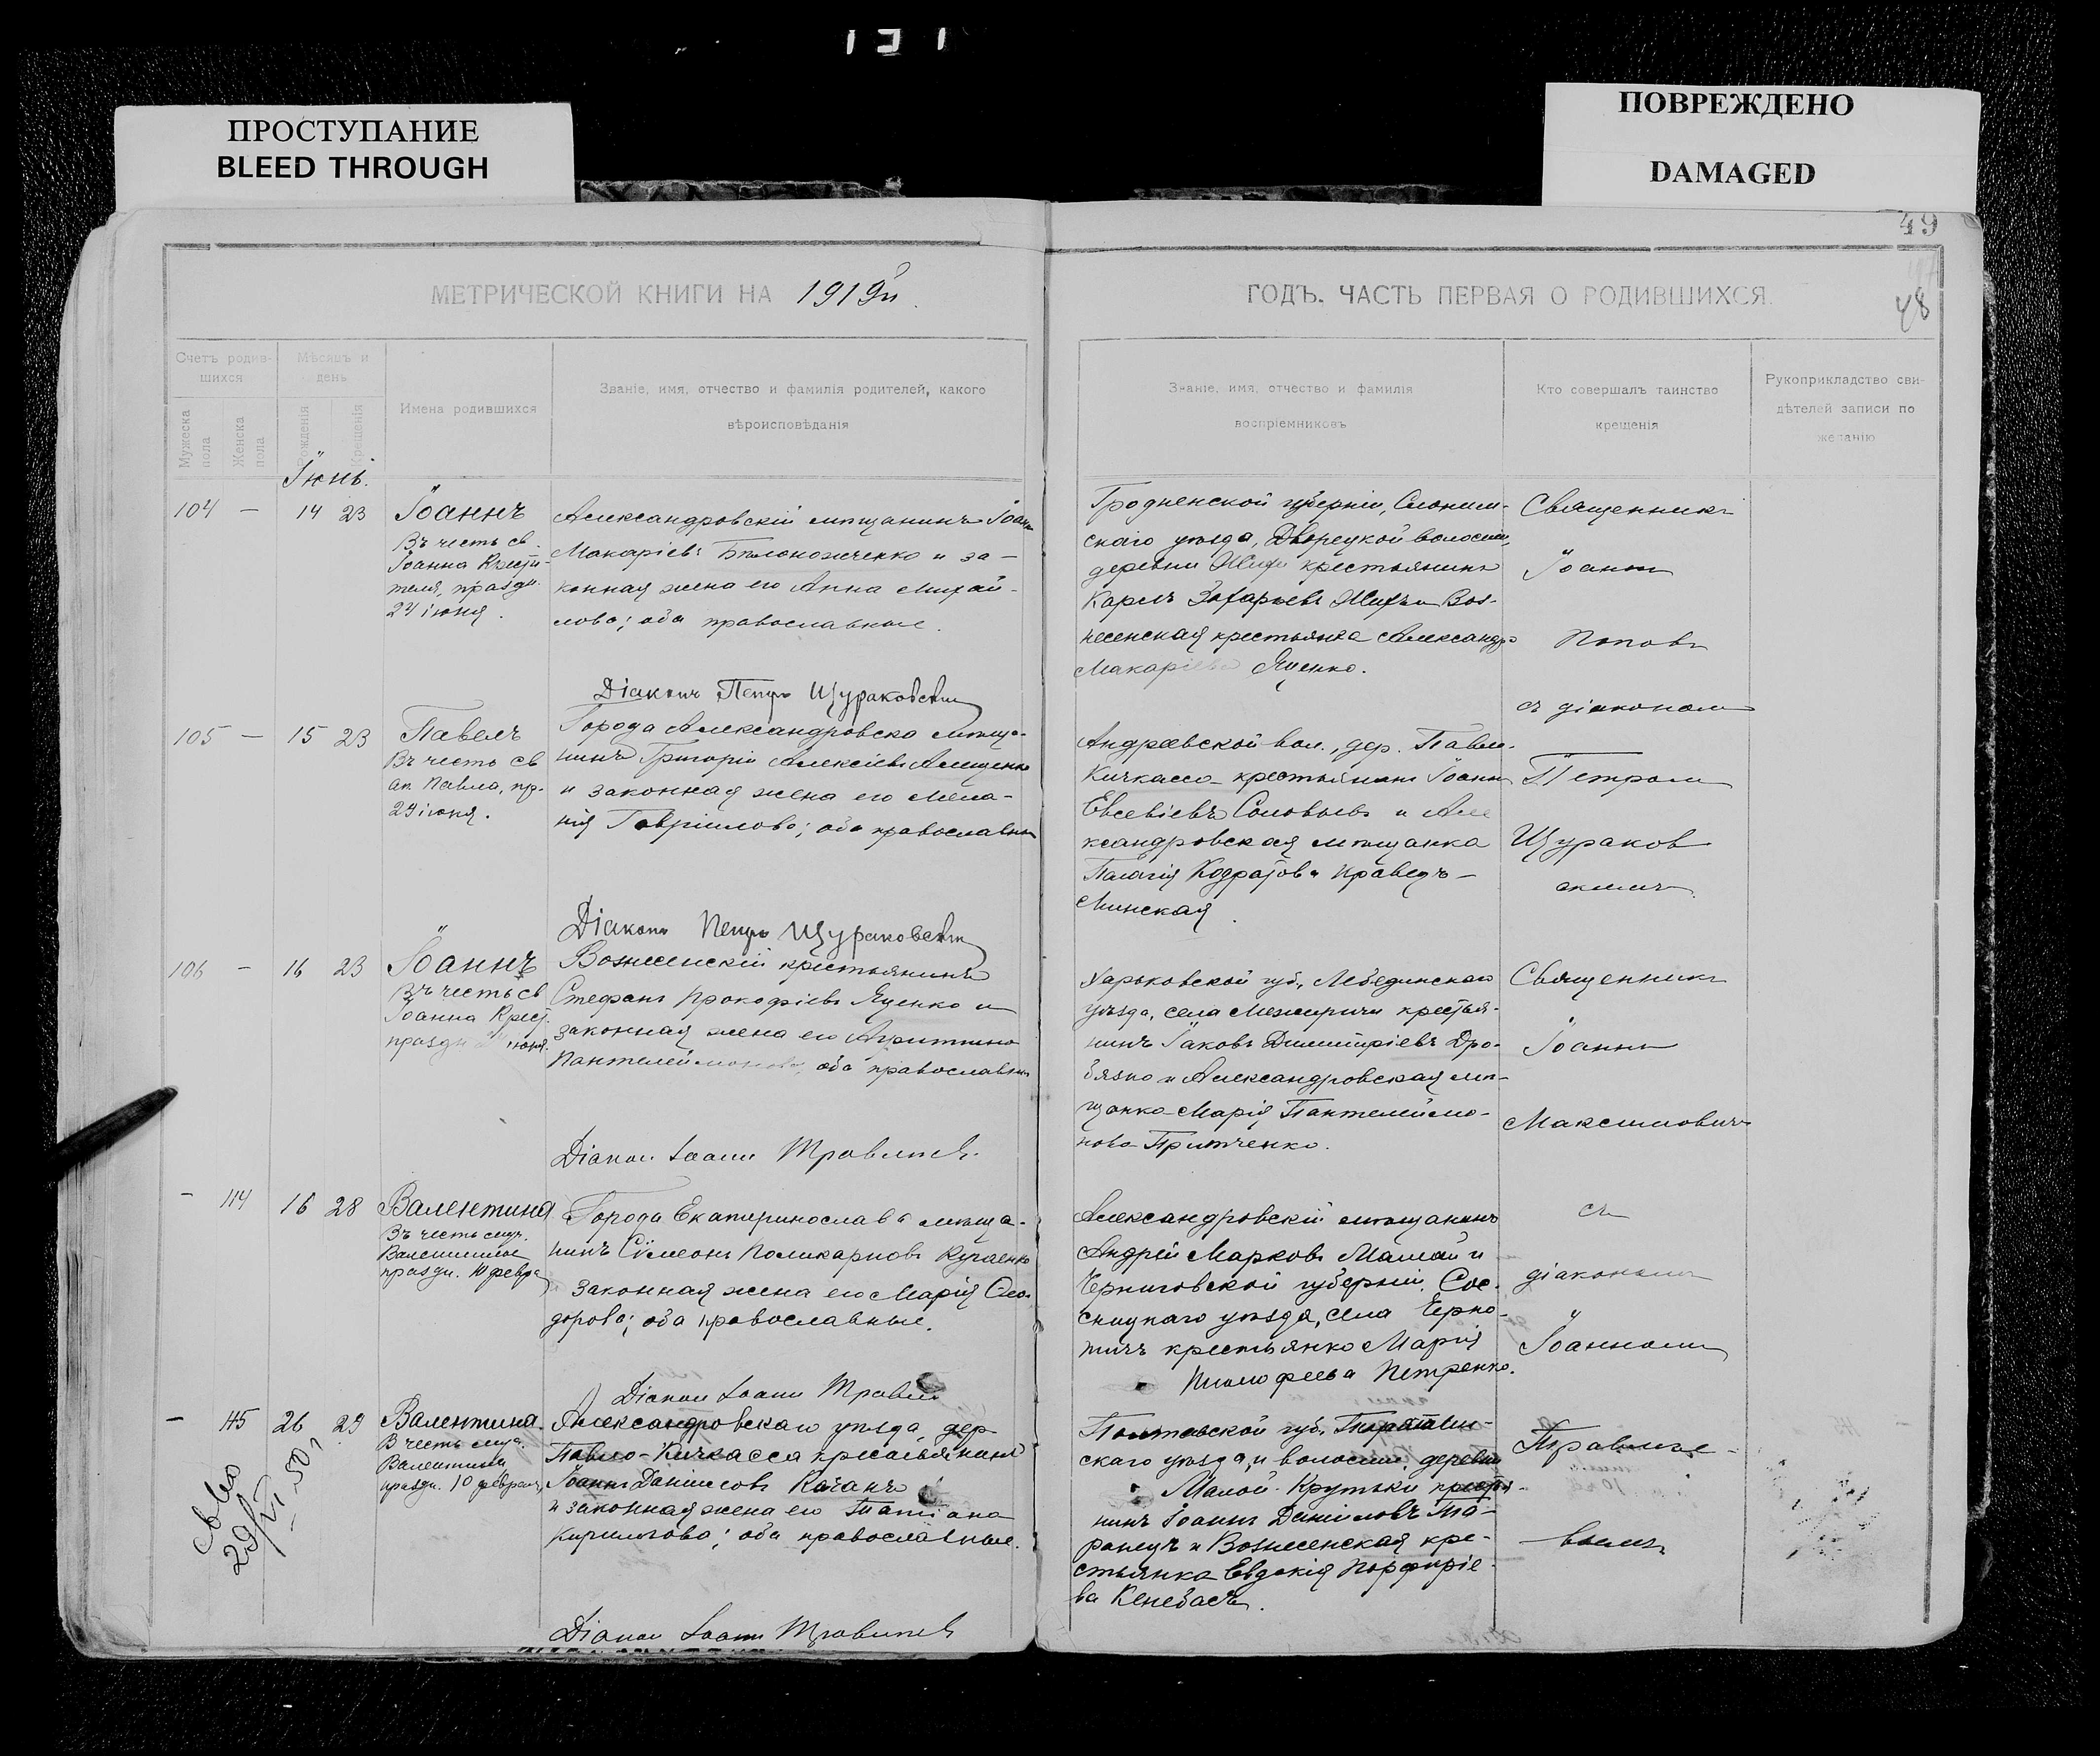 131
ПРОСТУПАНИЕ
BLEED THROUGH
ПОВРЕЖДЕНО
DAMAGED
49
48
МЕТРИЧЕСКОЙ КНИГИ НА 1919
ГОДЪ. ЧАСТЬ ПЕРВАЯ О РОДИВШИХСЯ.
Счетъ родив-
шихся
Мужеска
пола
Женска
пола
Мѣсяцъ и
день
Рожденія
Крещенія
Имена родившихся
Званіе, имя, отчество и фамилія родителей, какого
вѣроисповѣданія
Званіе, имя, отчество и фамилія
воспріемниковъ
Кто совершалъ таинство
крещенія
Рукоприкладство сви-
дѣтелей записи по
желанію
Іюнь.
104 — 14 23
Іоаннъ
Въ честь св.
Іоанна Крести-
теля, праздн.
24 іюня.
Александровскій мѣщанинъ Іоаннъ
Макаріевъ Бѣлоноженко и за-
конная жена его Анна Михай-
лова; оба православные.
Діаконъ Петръ Щураковскій
Гродненской губерніи, Слоним-
скаго уѣзда, Дворецкой волости,
деревни крестьянинъ
Карпъ Захарьевъ и Воз-
несенская крестьянка Александра
Макаріева Яценко.
Священникъ
Іоаннъ
Поповъ
съ діакономъ
105 — 15 23
Павелъ
Въ честь св.
ап. Павла, пр.
29 іюня.
Города Александровска мѣща-
нинъ Григорій Алексіевъ
и законная жена его Мела-
нія Гавріилова; оба православные
Діаконъ Петръ Щураковскій
Андреевской вол., дер. Павло-
Кичкасса крестьянинъ Іоаннъ
Евсевіевъ Соловьевъ и Але
ксандровская мѣщанка
Пелагія
Петромъ
Щураков
скимъ.
106 — 16 23
Іоаннъ
Въ честь св.
Іоанна Крест.
праздн. іюня.
Вознесенскій крестьянинъ
Стефанъ Прокофіевъ Яценко и
законная жена его Агриппина
Пантелеймонова, оба православные
Діаконъ Іоаннъ Травлѣевъ
Харьковской губ., Лебединскаго
уѣзда, села Межиричи крестья-
нинъ Іаковъ Димитріевъ Дро-
бязко и Александровская мѣ-
щанка Марія Пантелеймо-
нова Притченко.
Священникъ
Іоаннъ
Максимовичъ
— 114 16 28
Валентина
Въ честь муч.
Валентины
праздн. 10 февр.
Города Екатеринослава мѣща-
нинъ Сѵмеонъ Поликарповъ
законная жена его Марія Ѳео-
дорова; оба православные.
Діаконъ Іоаннъ
Александровскій мѣщанинъ
Андрей Марковъ Мамай и
Черниговской губерніи, Сос-
ницкаго уѣзда, села
крестьянка Марія
Тимофеева Петренко.
съ
діакономъ
Іоанномъ
— 115 26 29
Валентина.
В честь муч.
Валентины
праздн. 10 февраля,
Александровскаго уѣзда, дер.
Павло-Кичкасса крестьянинъ
Іоаннъ Даніиловъ Качанъ
и законная жена его Татіана
Кириллова; оба православные.
Діаконъ Іоаннъ Травлѣевъ
Полтавской губ.,
скаго уѣзда, и волости, деревни
Малой Крутьки крестья-
нинъ Іоаннъ Даніиловъ Та-
ранецъ и Вознесенская кре-
стьянка Евдокія Порфиріе-
ва Кенебасъ.
Травлѣе-
вымъ.